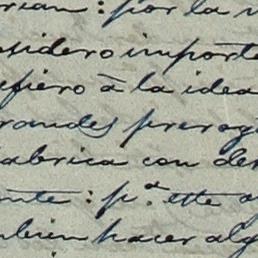 rian: por la
sidero importe
efiero à la idea
randes prerog
fabrica con der
nte: p.ª este a
mbien hacer alg